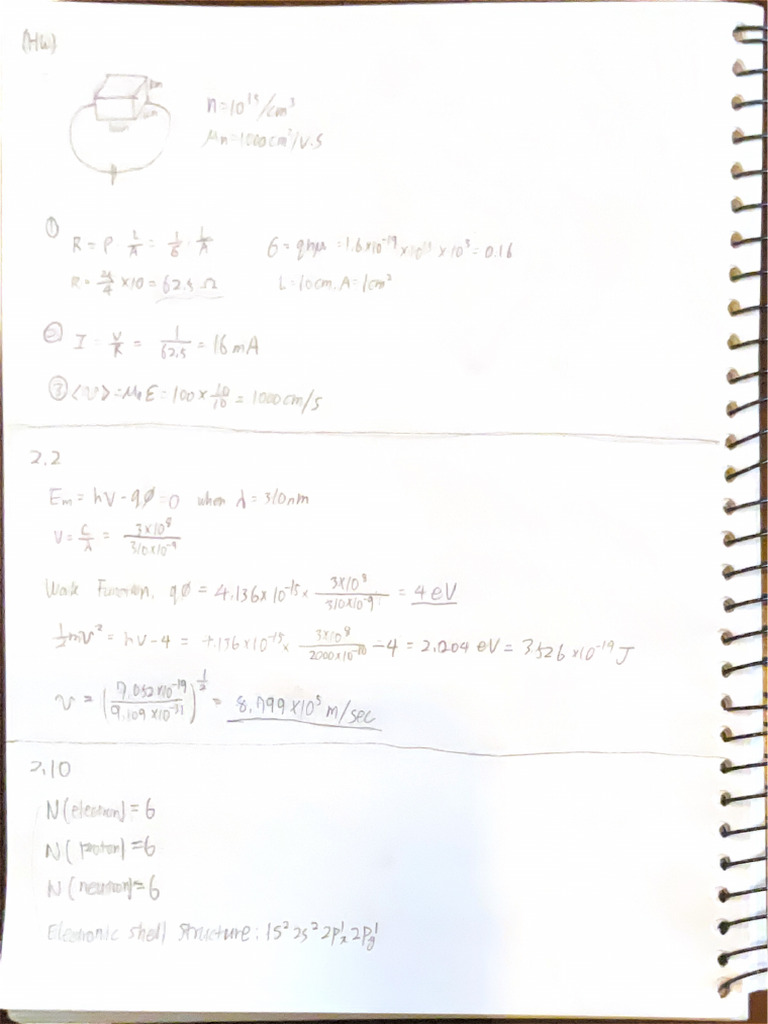 (HW)
n=10¹⁵/cm³
μn=1000cm²/V·S
① R = ρ L/A = 1/6 · L/A   6 = qnμ = 1.6×10⁻¹⁹ × × 10³ = 0.16
× 10 = 62.5 Ω   L=10cm, A=1cm²
② I = V/R = 1/62.5 = 16mA
③ <v> = μnE = 100 × 10/10 = 1000cm/s
2.2
Em = hν - qφ = 0 when λ = 310nm
ν = C/λ = 3×10⁸/310×10⁻⁹
Work Function, qφ = 4.136×10⁻¹⁵ × 3×10⁸/310×10⁻⁹ = 4eV
½mv² = hν-4 = 4.136×10⁻¹⁵ × 3×10⁸/2000×10⁻¹⁰ - 4 = 2.204 eV = 3.526 ×10⁻¹⁹ J
v = (7.052×10⁻¹⁹/9.109×10⁻³¹)^½ = 8.799×10⁵ m/sec
2.10
N(electron)=6
N(proton)=6
N(neutron)=6
Electronic shell structure: 1s² 2s² 2Px¹ 2Py¹